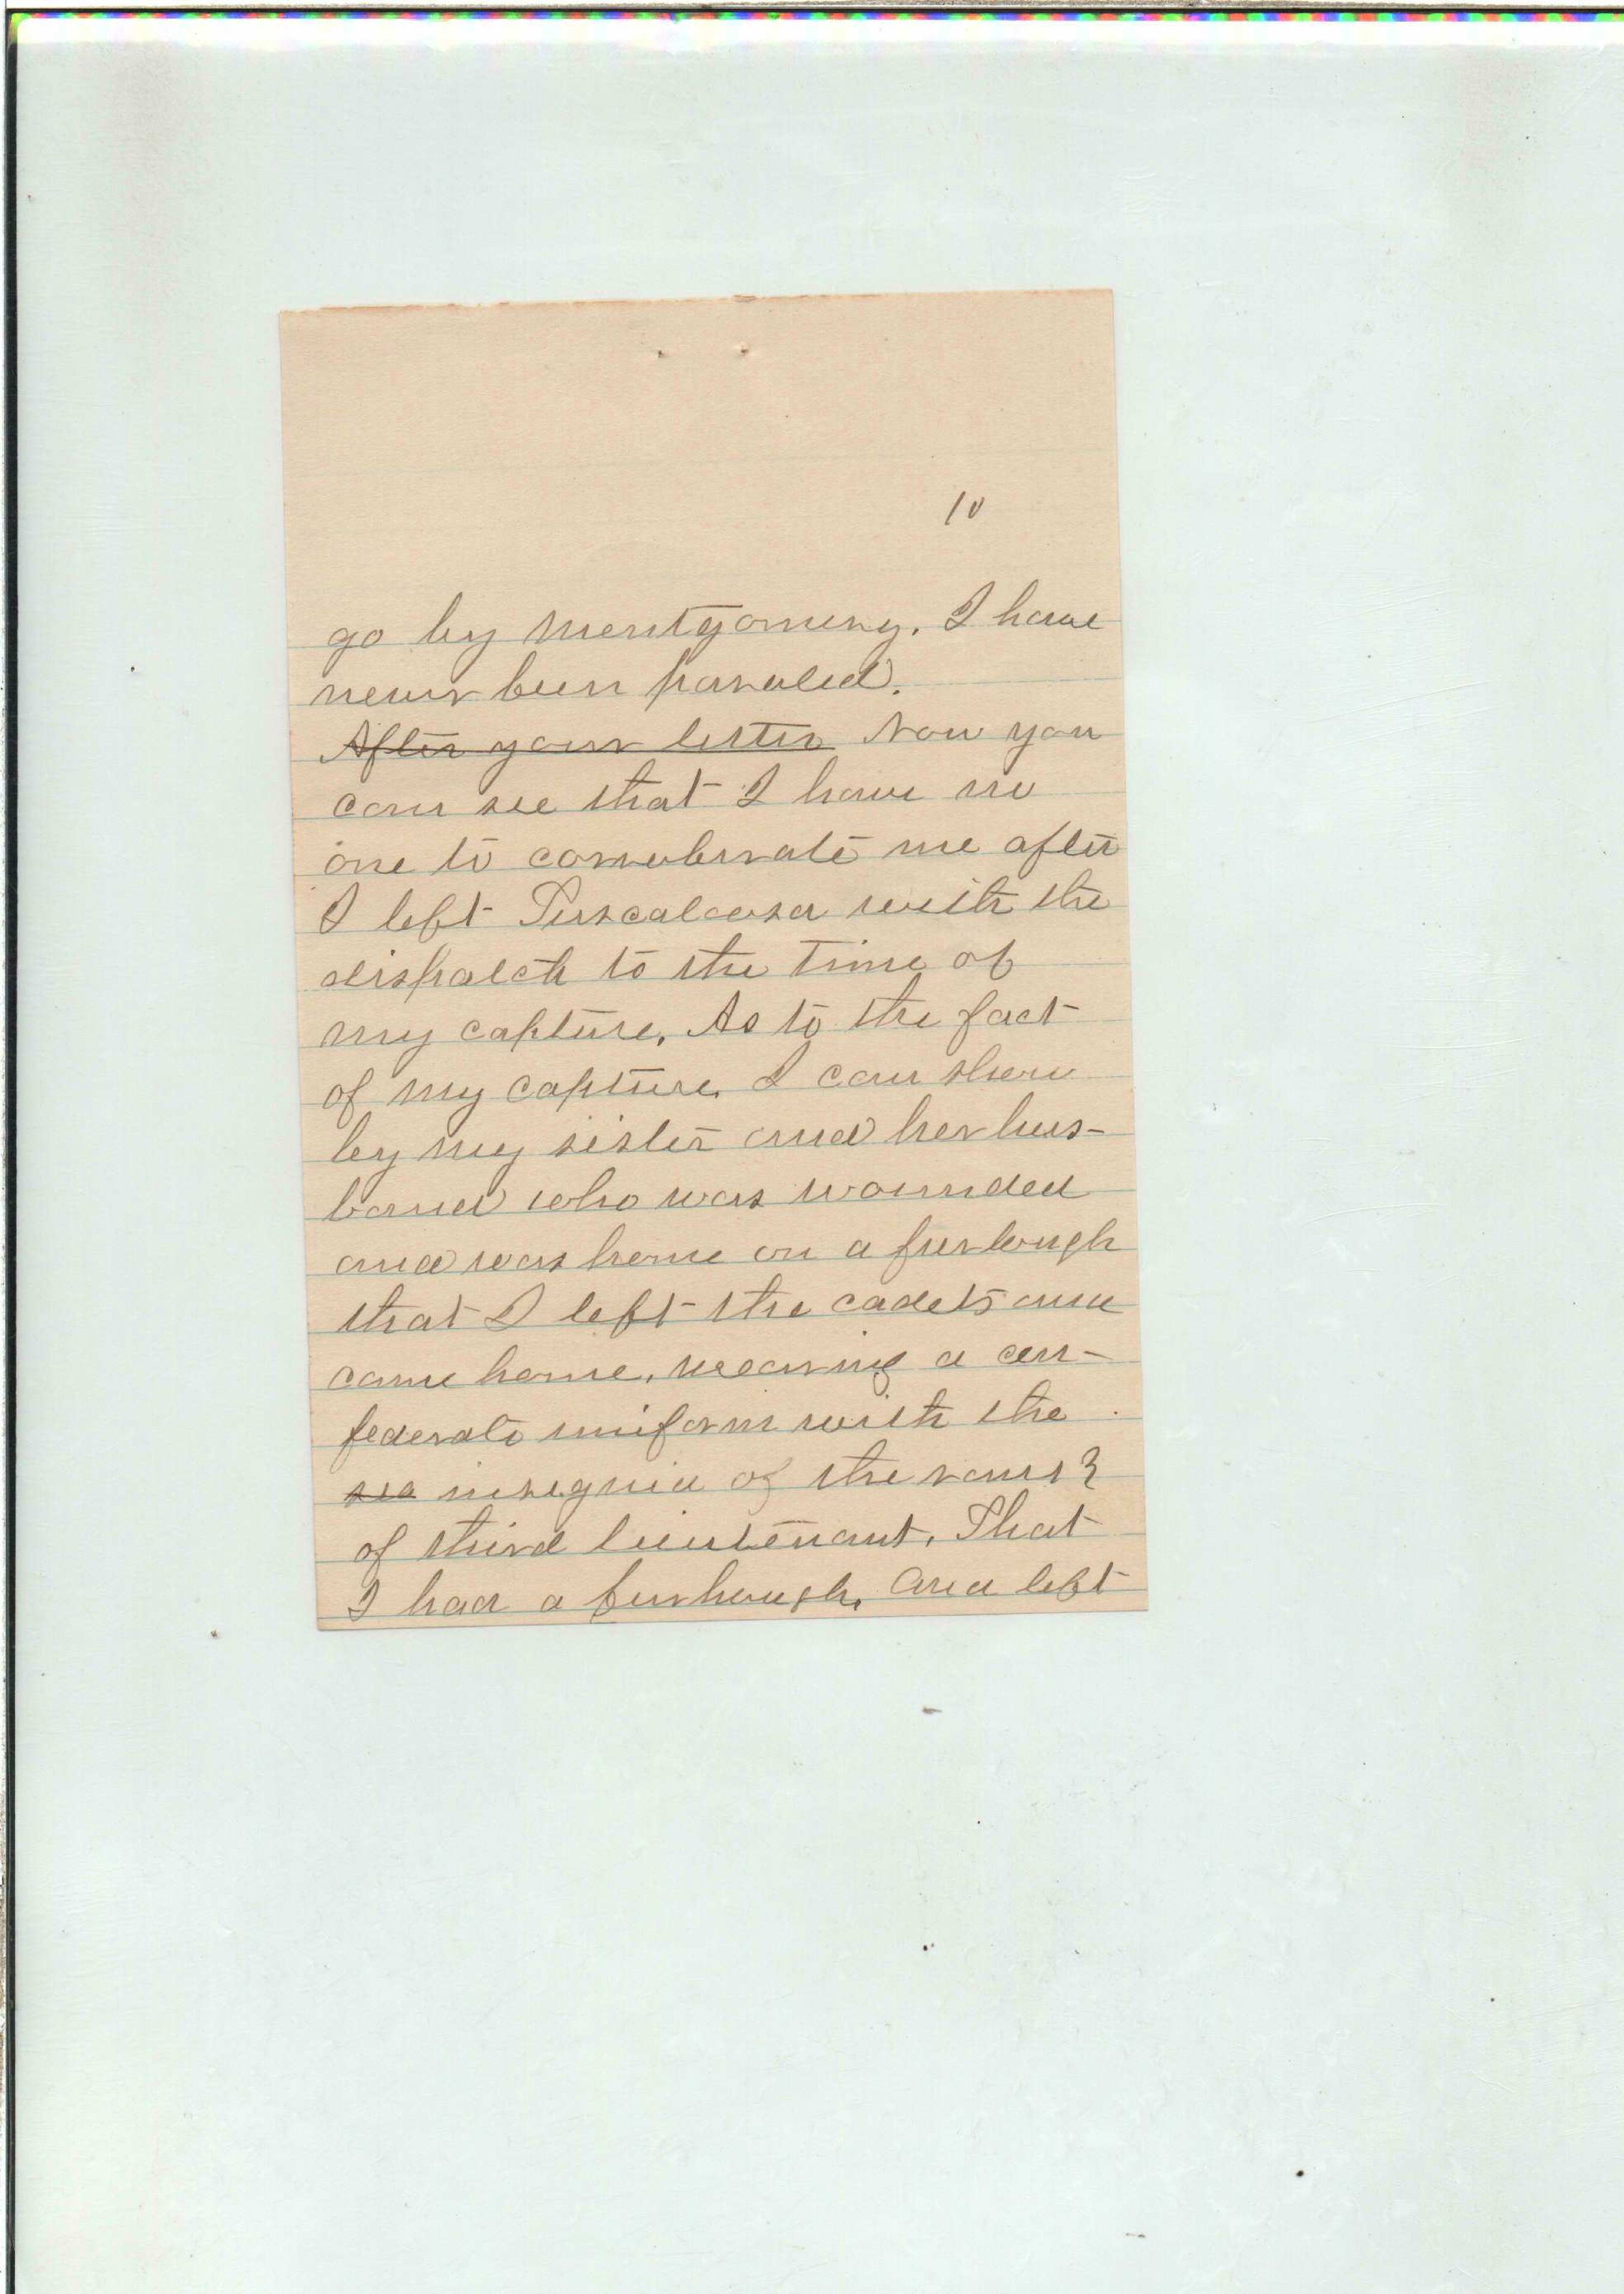 10
go by Montgomery. I have
never been paroled.
After your letter Now you
can see that I have no
one to corroborate me after
I left Tuscaloosa with the
dispatch to the time of
my capture. As to the fact
of my capture. I can show
by my sister and her hus-
band who was wounded
and was home on a furlough
that I left the cadets and
came home, wearing a con-
federate uniform with the
sea insegnia of the rank
of third lieutenant. That
I had a furhough. And left